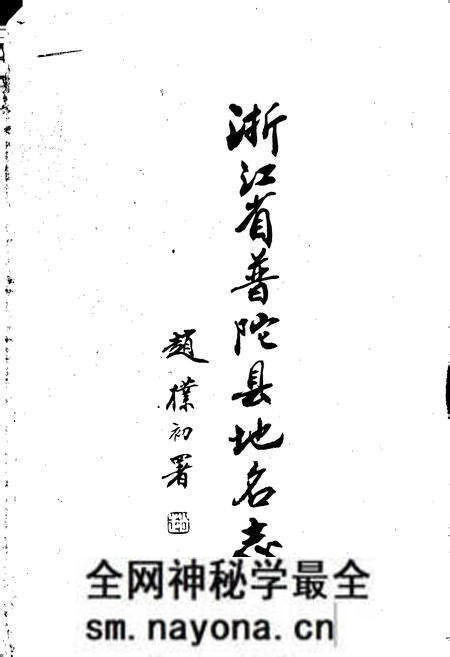 浙江省普陀县地名志
趙樸初署
全网神秘学最全
sm.nayona.cn